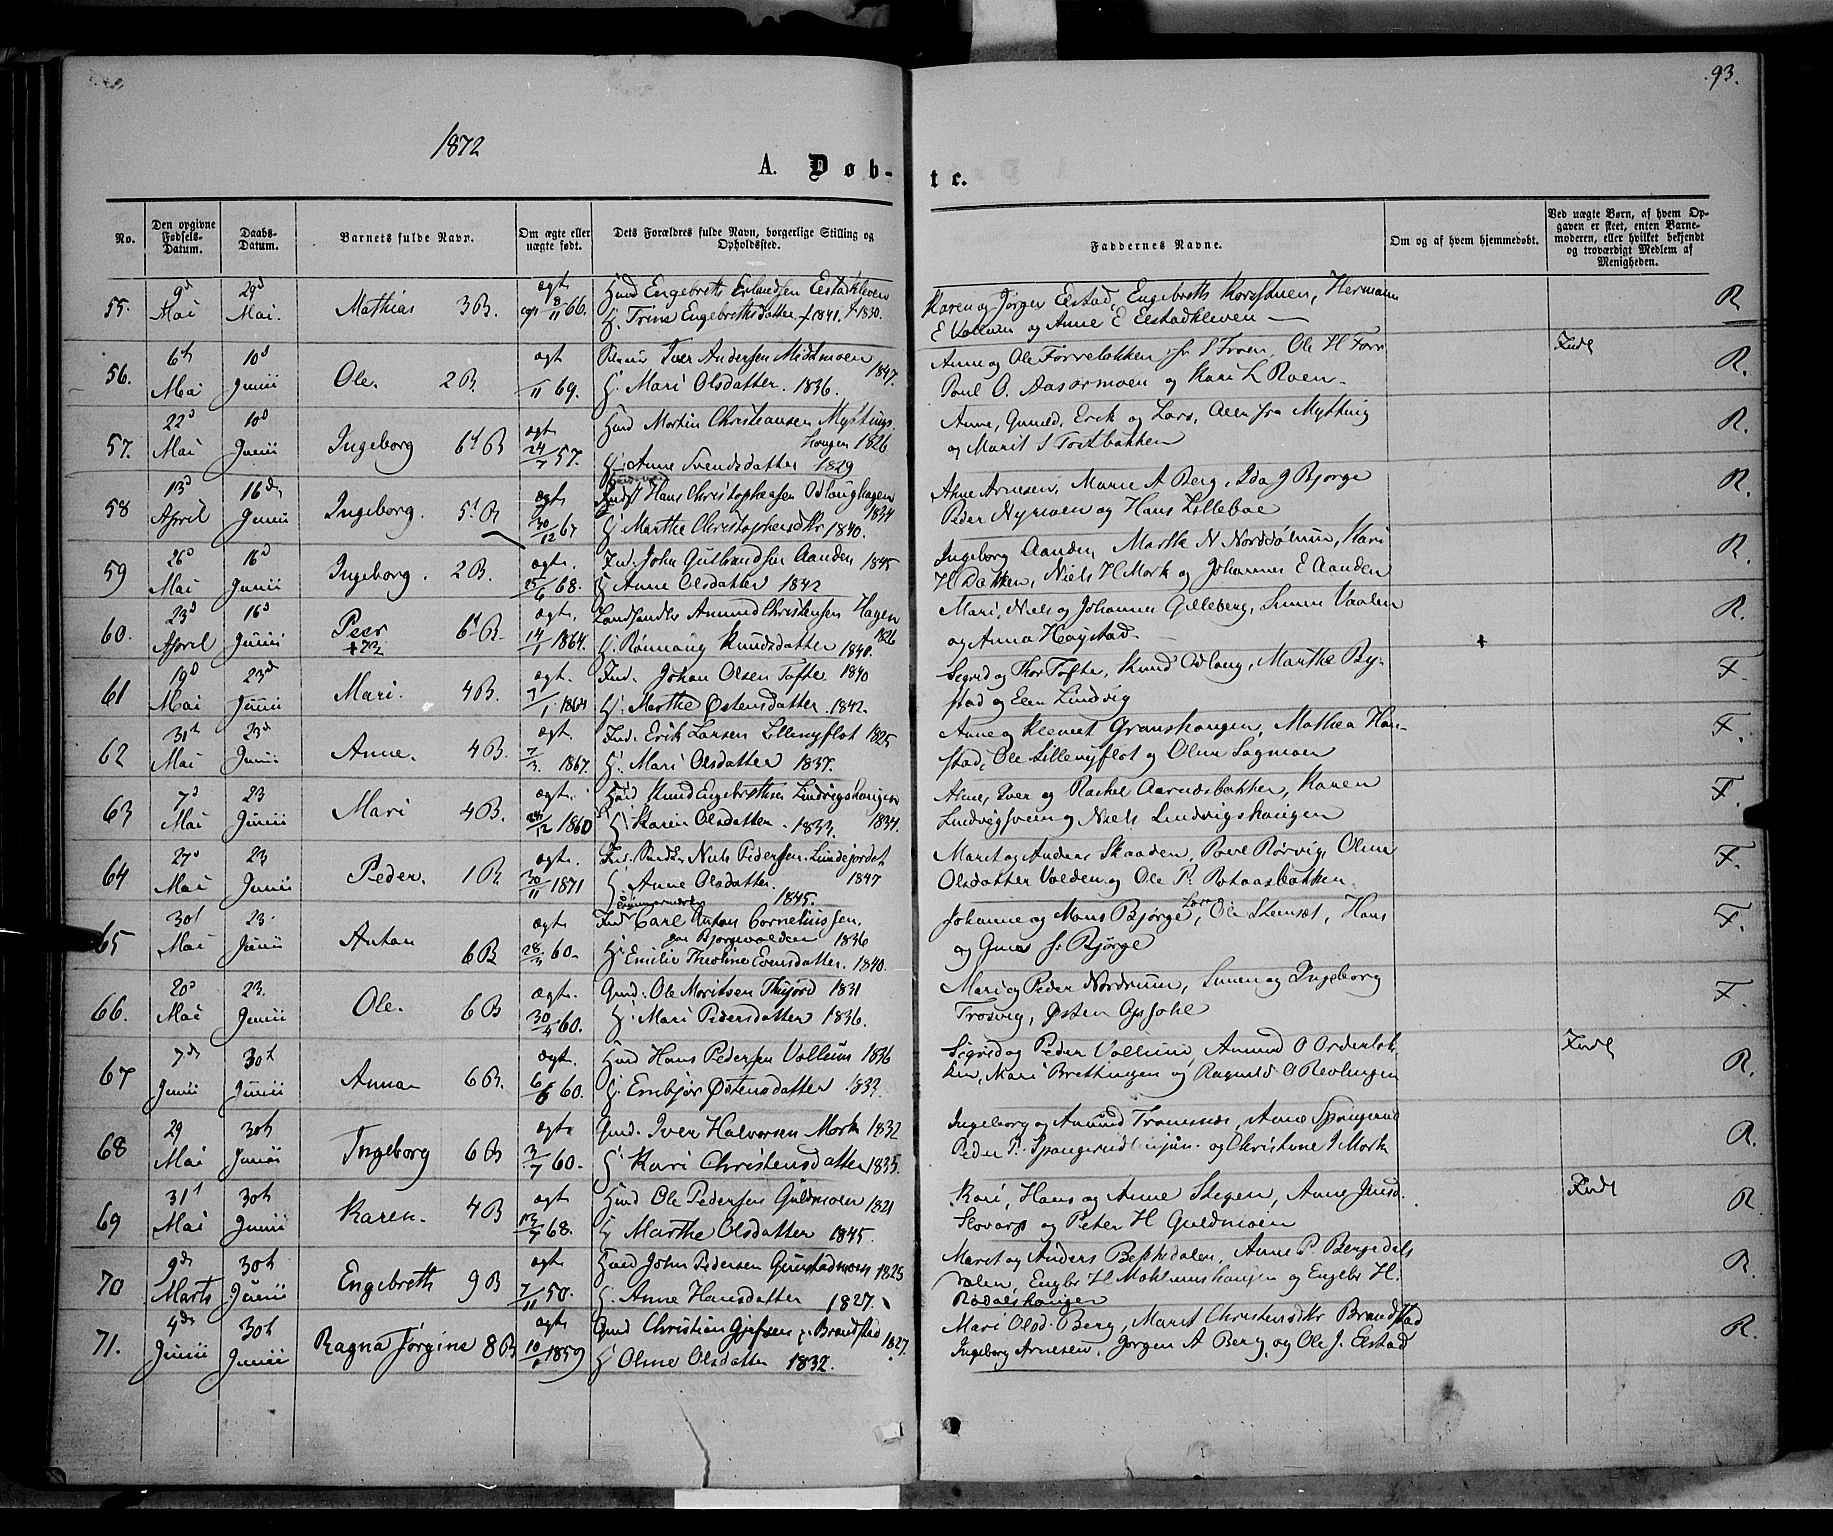 93.
1872
A. Døb-
te.
No.
Den opgivne Fødsels-Datum.
Daabs-Datum.
Barnets fulde Navn.
Om ægte eller uægte født.
Dets Forældres fulde Navn, borgerlige Stilling og Opholdssted.
Faddernes Navne.
Om og af hvem hjemmedøbt.
Ved uægte Børn, af hvem Opgaven er skeet, enten Barnemoderen, eller hvilket bekjendt og troværdigt Medlem af Menigheden.
55. 9d Mai 29d Mai. Mathias 3B. ægte 66. Huusd Engebreth Erlandsen Elstadkleven
H. Trine Engebrethsdatter 1841. 1830.
Karen og Jørgen Elstad, Engebreth Hermann
E Vollum og Anne E Elstadkleven R
56. 6te Mai 10d Junii Ole. 2B. ægte 69. Iver Andersen Midtmoen 1847.
H. Mari Olsdatter. 1836.
Anne og Ole Ole H
Poul O. Aasarmoen og Kari L Roen R.
57. 22d Mai 10d Junii Ingeborg 6t B ægte 24/7 57. Huusd Mortin Christiansen Myttings
Haugen 1826
H. Anne Svendsdatter 1829
Anne, Gunild, Erik og Lars, Alle fra Mytting
og Marit S Tostbakken R.
58 13d April 16de Junii Ingeborg. 5t B ægte 30/12 67 Hans Christophersen Odloughagen
1834
H. Marthe Christophersdtr 1840.
Anne Arnesen, Marie A Berg, Ida J Bjørge
Peder Nyrmoen og Hans Lilleboe R.
59 26d Mai 16d Junii Ingeborg. 2B. ægte. 25/6 68. Ind. John Gulbrandsen Aanden 1845
H. Anne Olsdatter 1842
Ingeborg Aanden, Marthe N Norddølum, Kari
H Bakken, Niels H Mork og Johannes E Aanden R.
60. 23d April 16d Junii Peer 6t B. ægte. 14/1 1864. Landhandler Amund Christensen Hagen
1826
H. Rønnaug Knudsdatter 1840.
Mari, Niels og Johannes Gilleberg, Simen Vaalen
og Anna Haystad R.
61 19d Mai 23d Junii Mari. 4B. ægt. 1864 Ind. Johan Olsen Tofte 1840
H. Marthe Østensdatter 1842.
Sigrid og Thor Tofte, Knud Odloug, Marthe By-
stad og Elen Lindvig F.
62 31te Mai 23d Junii Anne. 4B. ægt. 7/3. 1867. Ind. Erik Larsen Lillenyflot 1825
H. Mari Olsdatter 1837.
Anne og Klemet Granshaugen, Mathea Han-
stad, Ole Lillenyflot og Oline Sagmoen F.
63 7d Mai 23 Junii Mari 4B. ægte. 24/12 1860 Huusd Knud Engebrethsen Lindvigshaugen
H. Karen Olsdatter. 1833. 1834.
Anne, Iver og Rachel Aarnesbakken, Karen
Lindvigsveen og Niels Lindvigshaugen F.
64 27d Mai 23 Junii Peder. 1B. ægte. 30/11 1871 Niels Pedersen Lundejordet
H. Anne Olsdatter. 1847
1845.
Marit og Anders Skaaden, Povel Rørvig, Oline
Olsdatter Volden og Ole P. Rotaasbakken F.
65 30t Mai 23. Junii Anton 6B ægte 28/3 60. Ind Carl Anton Corneliussen
paa Bjørgevolden 1836
H. Emilie Theoline Evensdatter. 1840.
Johanne og Mons Bjørge, Lars, Ole Stensæt, Hans
og fr Bjørge F.
66. 20d Mai 23. Junii Ole. 6B ægte. 30/4 60. Gmd. Ole Moritsen Thujord 1831
H. Mari Pedersdatter 1836.
Mari og Peder Nordrum, Simen og Ingeborg
Trosvig, Østen Opsahl F.
67 7de Junii 30t Junii Anna 6B. ægte. 6/6 60. Huusd Hans Pedersen Vollum 1836
H. Embjør Østensdatter 1832.
Sigrid og Peder Vollum, Amund O Orderlok-
ken, Mari Brettingen og Ragnild O Revlingen R.
68 29 Mai 30te Junii Ingeborg 6B ægte 3/7 60. Gmd. Iver Halvorsen Mork 1832
H. Kari Christensdatter 1835.
Ingeborg og Amund Tranesnes, Arne Spangrud
Peder P. Spangrud og Christine I Mork R.
69 31t Mai 30te Junii Karen. 4B ægte 13/7 68. Huusd Ole Pedersen Guldmoen 1821
H. Marthe Olsdatter 1845.
Kari, Hans og Anne Stegen, Anne Jensd.
Skovarp og Peter H Guldmoen R.
70 9de Marts 30te Junii Engebreth 9B ægte 7/11 50. Huusd John Pedersen Grimstadmoen 1825
H. Anne Hansdatter 1827.
Marit og Anders Anne P
dalen, Engbr H Moklumshaugen og Engebr H.
Rødalshaugen R.
71. 4de Junii 30te Junii Ragna Jørgine 8B ægte 1859 Gmd Christian Gjefsen p. Brandstad 1827.
H. Oline Olsdatter 1832.
Mari Olsd. Berg, Marit Christensdtr Brandstad
Ingeborg Arnesen, Jørgen A Berg, og Ole J. Elstad R.